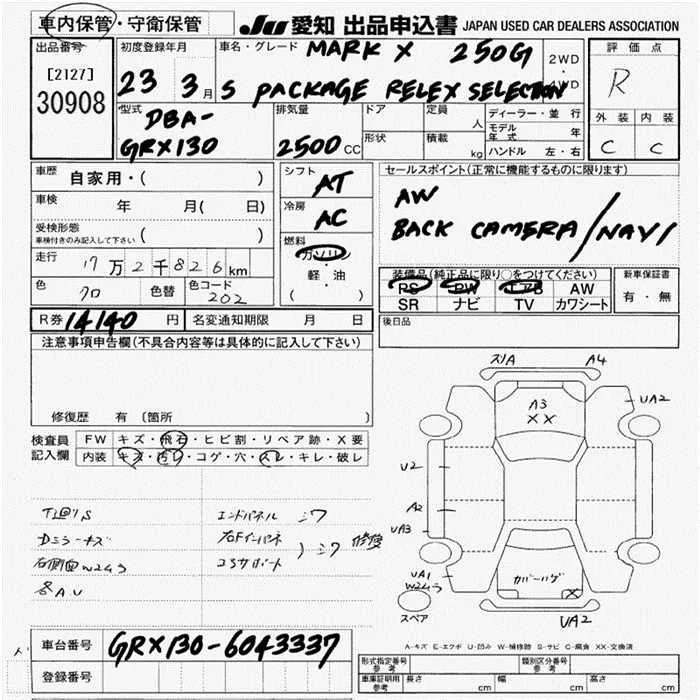 車内保管・守衛保管
JU 愛知 出品申込書 JAPAN USED CAR DEALERS ASSOCIATION
出品番号 初度登録年月 車名・グレード MARK X 250G 2WD・4WD 評価点
[2127]
30908 23 3月 S PACKAGE RELEX SELECTION R
型式 DBA-GRX130 排気量 2500CC ドア 定員 人 ディーラー・並行 外装 内装
形状 積載 kg モデル年式 年 C C
ハンドル 左・右
車歴 自家用・( ) シフト AT セールスポイント(正常に機能するものに限ります)
車検 年 月( 日) 冷房 AC AW
受検形態 ( ) BACK CAMERA/NAVI
車検付きのみ記入して下さい
燃料 ガソリン
走行 17万2千826km 軽・油 装備品(純正品に限り○をつけてください) 新車保証書
色 クロ 色替 色コード 202 ( ) PS PW エアB AW 有・無
SR ナビ TV カワシート
R券 14140円 名変通知期限 月 日 後日品
注意事項申告欄(不具合内容等は具体的に記入して下さい)
修復歴 有 〔箇所
検査員記入欄 FW キズ・飛石・ヒビ割・リペア跡・X要
内装 キズ・汚レ・コゲ・穴・スレ・キレ・破レ
スリA A4
A3 XX
UA2
U2
A2
UA3
UA1
W2ムラ
カバーハゲ X
UA2
スペア
Dミラーキズ
右側面W2ムラ
各AU
エンドパネル シワ
右Fインパネ
コSサポート
)シワ 修復
A-キズ E-エクボ U-凹み W-補修跡 S-サビ C-腐食 XX-交換済
車台番号 GRX130-6043337
登録番号
形式指定番号 参考 類別区分番号 参考
車庫証明用 参考 長さ cm 幅 cm 高さ cm